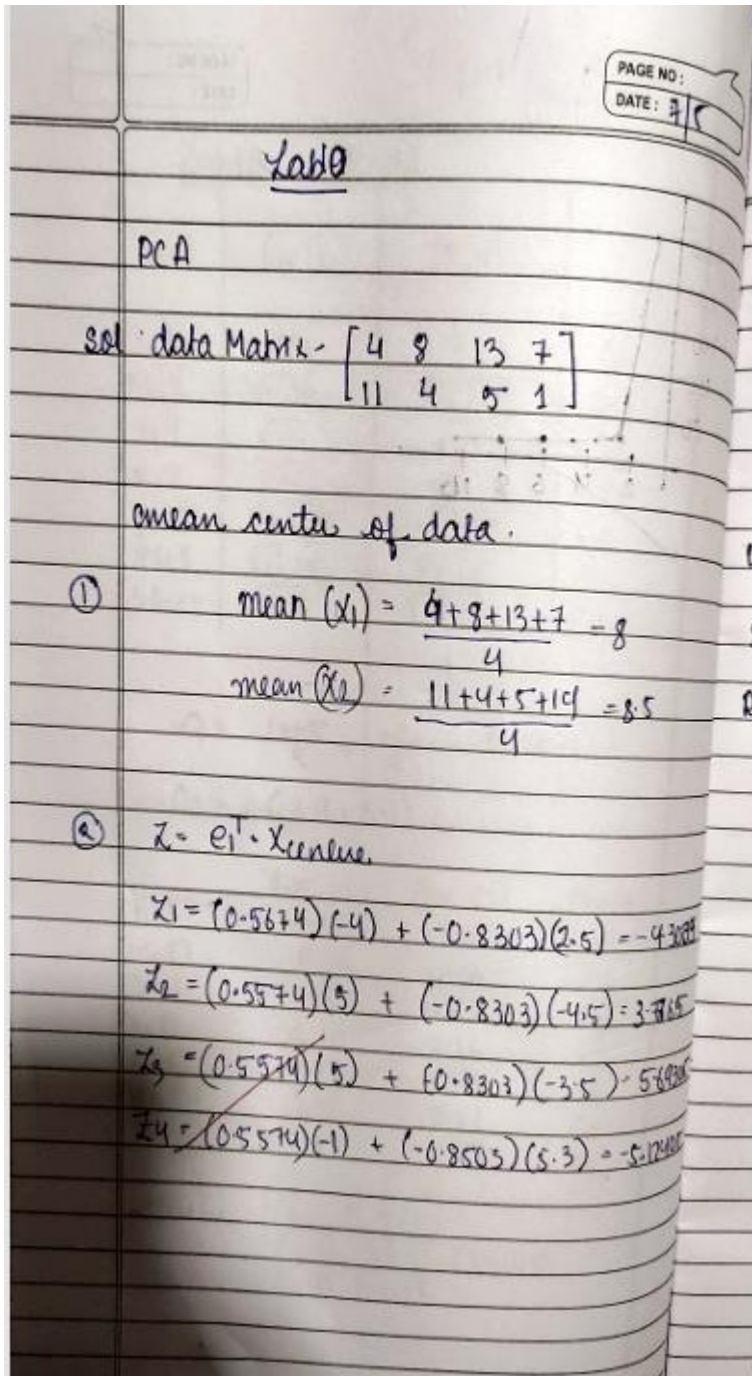 PAGE NO:
DATE: 7/5
PCA
sol data Matrix - [4 8 13 7
11 4 5 1]
mean center of data.
① mean (x1) = 4+8+13+7 / 4 = 8
mean (x2) = 11+4+5+14 / 4 = 8.5
② Z = e1^T · Xcentre
Z1 = (0.5674)(-4) + (-0.8303)(2.5) =
Z2 = (0.5574)(5) + (-0.8303)(-4.5) =
Z3 = (0.5574)(5) + (0.8303)(-3.5) =
Z4 = (0.5574)(-1) + (-0.8503)(5.3) =